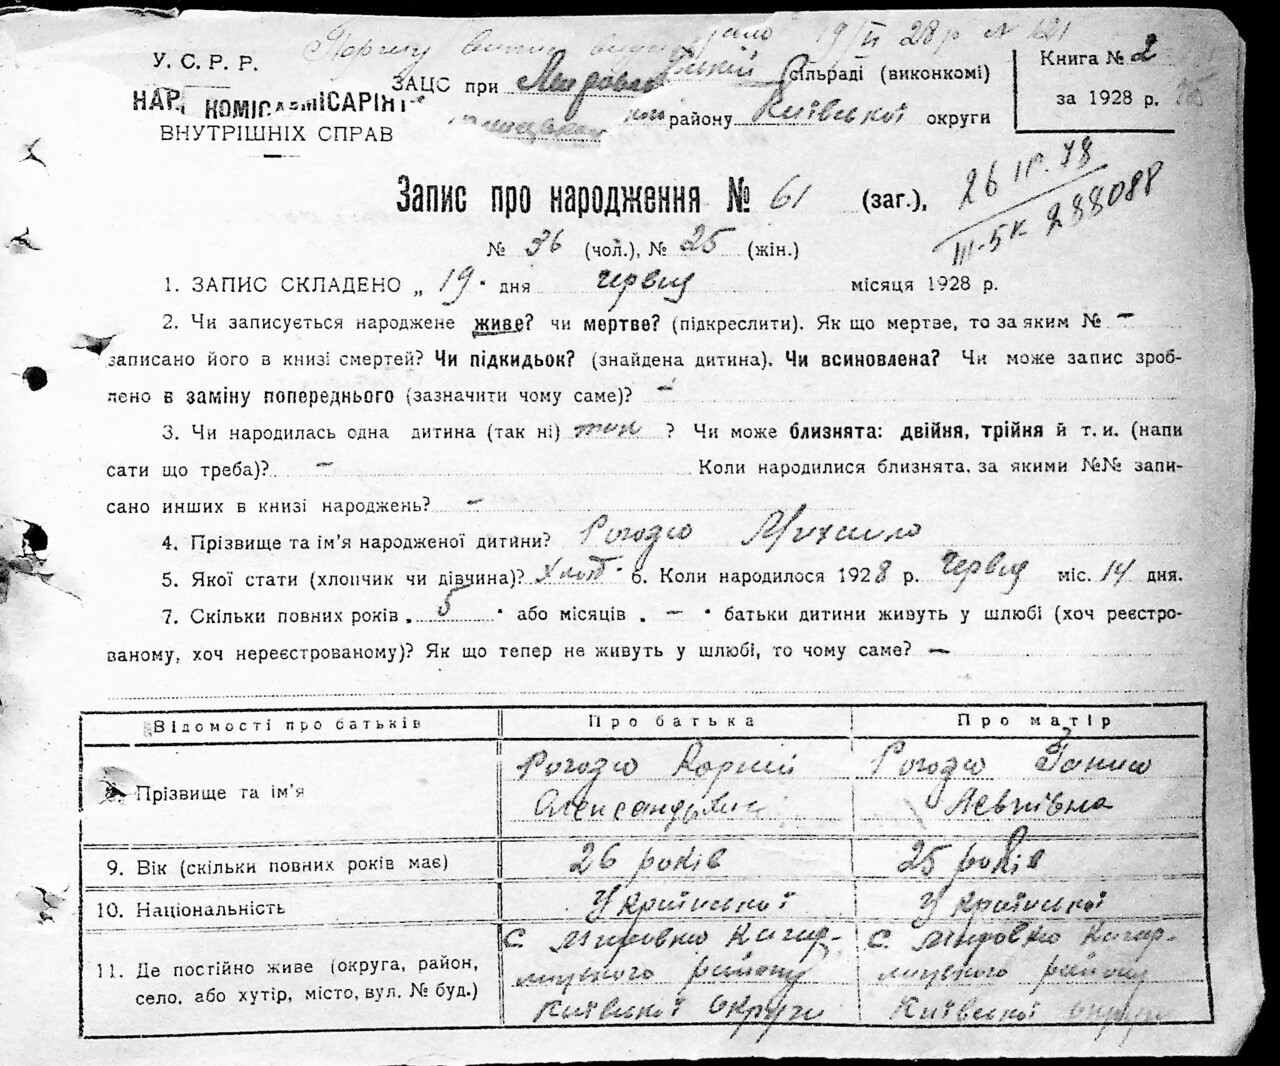 19/VI 28 р № 121
У. С. Р. Р.
НАР. КОМІСАРІЯТ
ВНУТРІШНІХ СПРАВ
ЗАЦС при Мировській сільраді (виконкомі)
району Київської округи
Книга № 2
за 1928 р.
Запис про народження № 61 (заг.),
26 IV. 78
III-5К 288088
№ 36 (чол.), № 25 (жін.)
1. ЗАПИС СКЛАДЕНО „ 19 " дня червня місяця 1928 р.
2. Чи записується народжене живе? чи мертве? (підкреслити). Як що мертве, то за яким № —
записано його в книзі смертей? Чи підкидьок? (знайдена дитина). Чи всиновлена? Чи може запис зроб-
лено в заміну попереднього (зазначити чому саме)? —
3. Чи народилась одна дитина (так ні) так ? Чи може близнята: двійня, трійня й т. и. (напи
сати що треба)? — Коли народилися близнята, за якими №№ запи-
сано инших в книзі народжень? —
4. Прізвище та ім'я народженої дитини? Рогодзо Михайло
5. Якої стати (хлопчик чи дівчина)? Хлоп. 6. Коли народилося 1928 р. Червня міс. 14 дня.
7. Скільки повних років „ 5 " або місяців „ — " батьки дитини живуть у шлюбі (хоч реєстро-
ваному, хоч нереєстрованому)? Як що тепер не живуть у шлюбі, то чому саме? —
Відомості про батьків Про батька Про матір
8. Прізвище та ім'я
Рогодзо Корній
Олександрович
Рогодзо Ганна
9. Вік (скільки повних років має) 26 років 25 років
10. Національність Української Української
11. Де постійно живе (округа, район,
село, або хутір, місто, вул. № буд.)
с. Мировка Кагар-
лицького району
Київської округи
с. Мировка Кагар-
лицького району
Київської округи